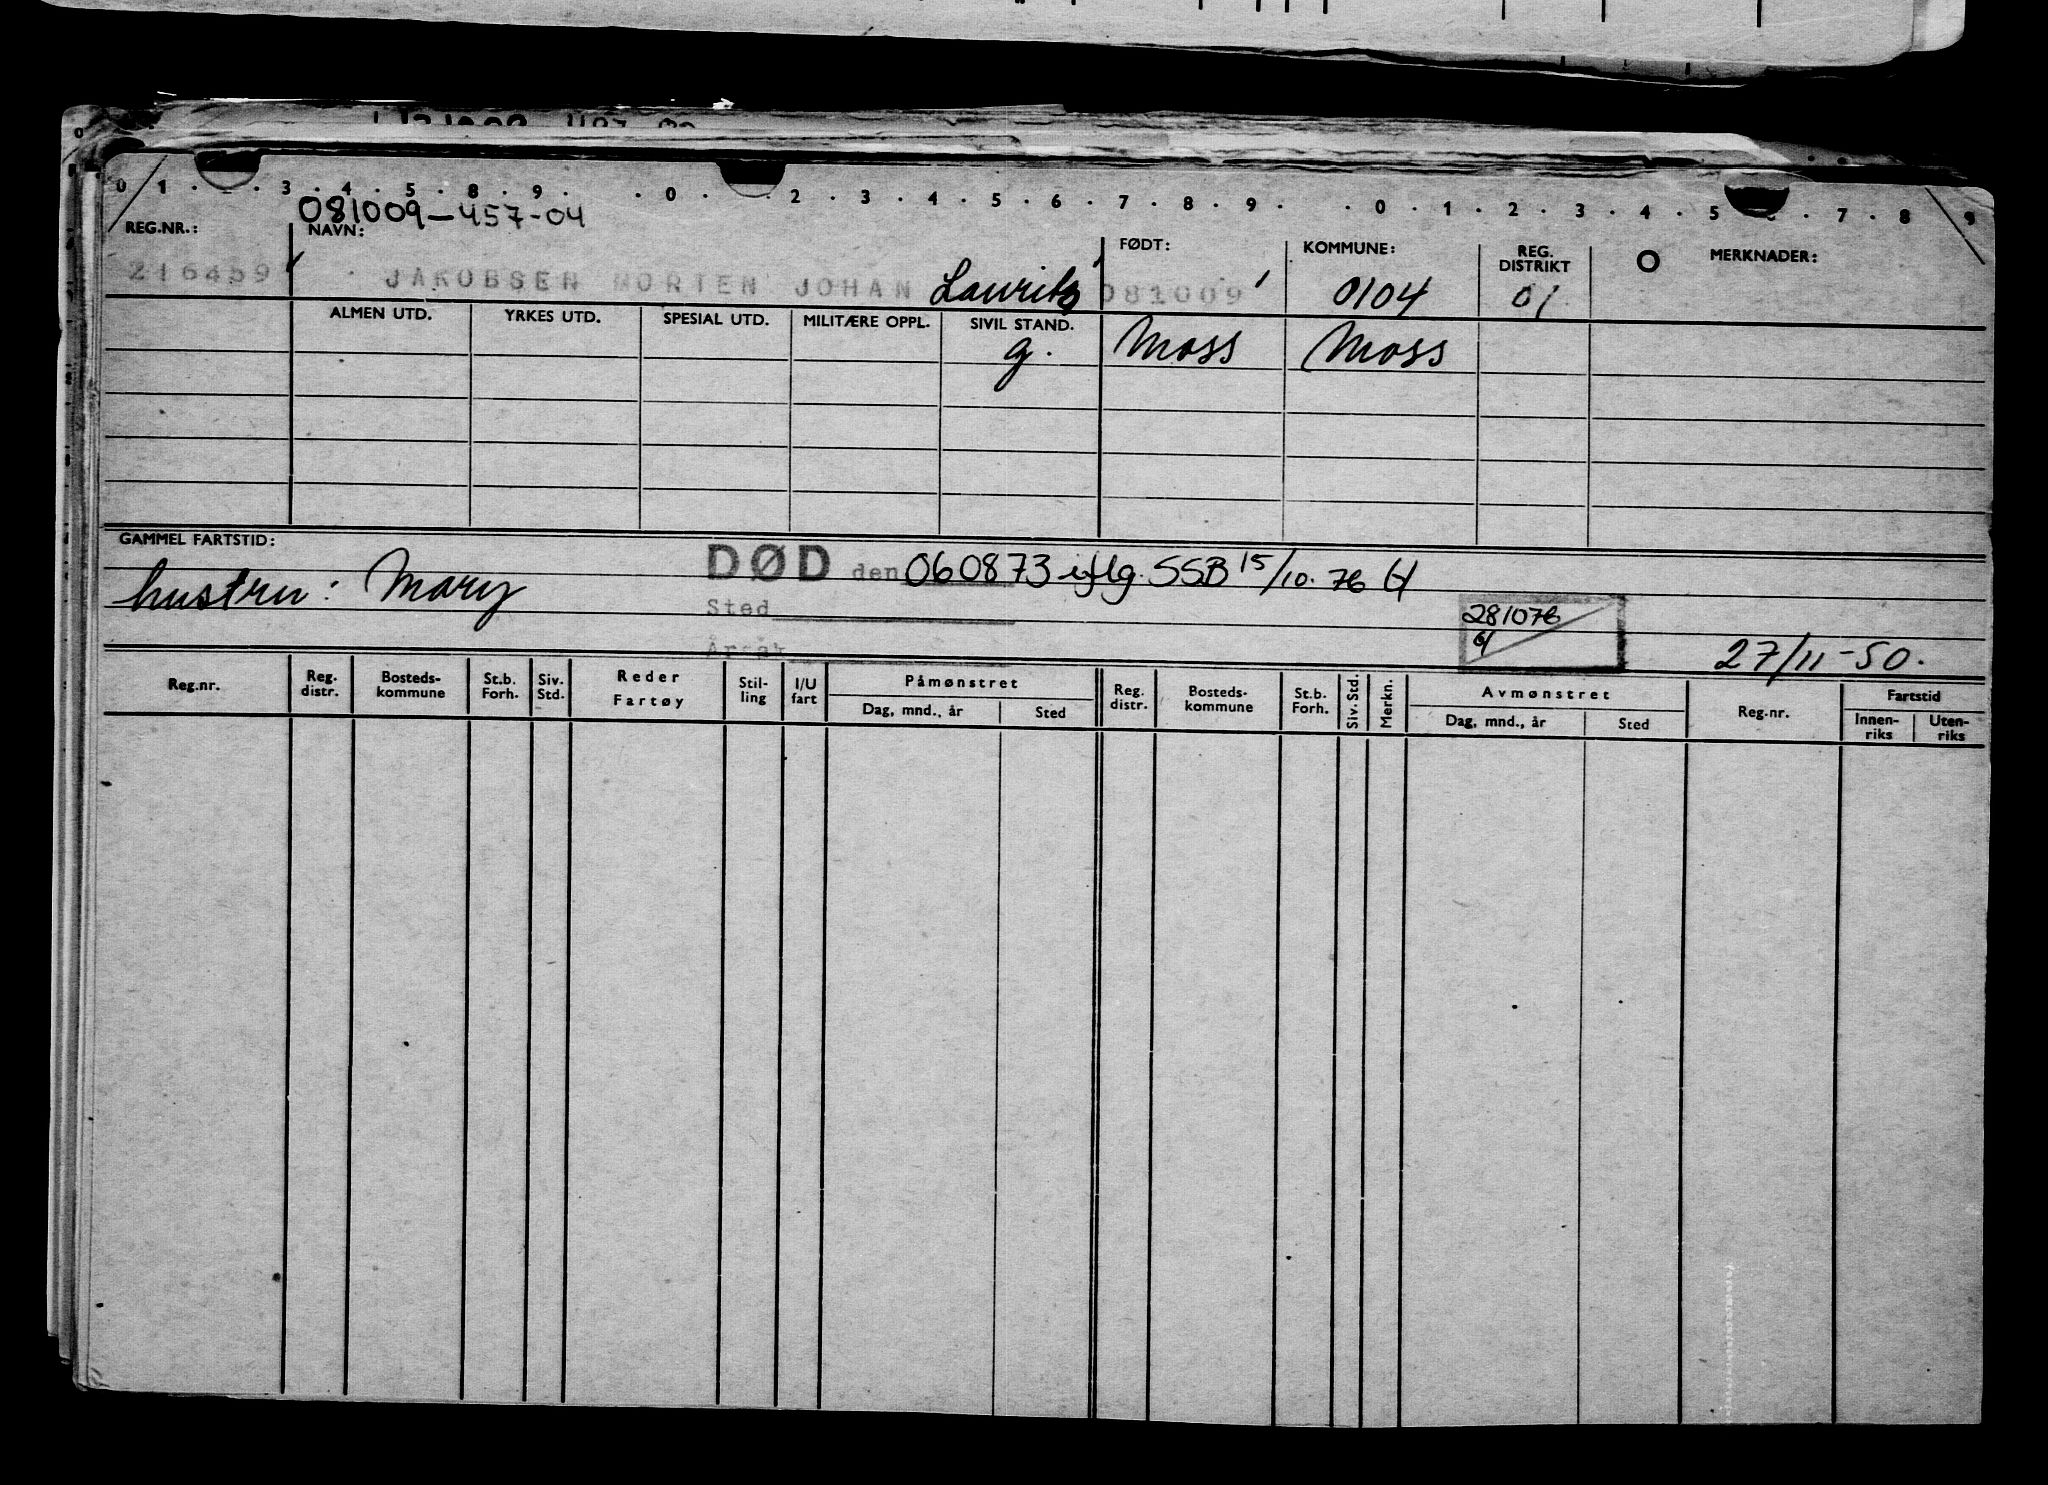 0 1 . . 3 . 4 . 5 . 8 . 9 . . 0 . 2 . 3 . 4 . 5 . 6 . 7 . 8 . 9 . . 0 . 1 . 2 . 3 . 4 . 5 . 7 . 8 9
081009-457-04
REG.NR.: NAVN: FØDT: KOMMUNE: REG. DISTRIKT O MERKNADER:
216459 JAKOBSEN MORTEN JOHAN Lauritz 081009 0104 01
ALMEN UTD. YRKES UTD. SPESIAL UTD. MILITÆRE OPPL. SIVIL STAND.
g. Moss Moss
GAMMEL FARTSTID:
DØD den 060873 iflg. SSB 15/10. 76
hustru: Mary
Sted
281076
Årsak
27/11-50.
Reg.nr. Reg. distr. Bosteds-kommune St.b. Forh. Siv. Std. Reder Fartøy Stil-ling I/U fart Påmønstret Reg. distr. Bosteds-kommune St.b. Forh. Siv. Std. Merkn. Avmønstret Reg.nr. Fartstid
Dag, mnd., år Sted Dag, mnd., år Sted Innen-riks Uten-riks